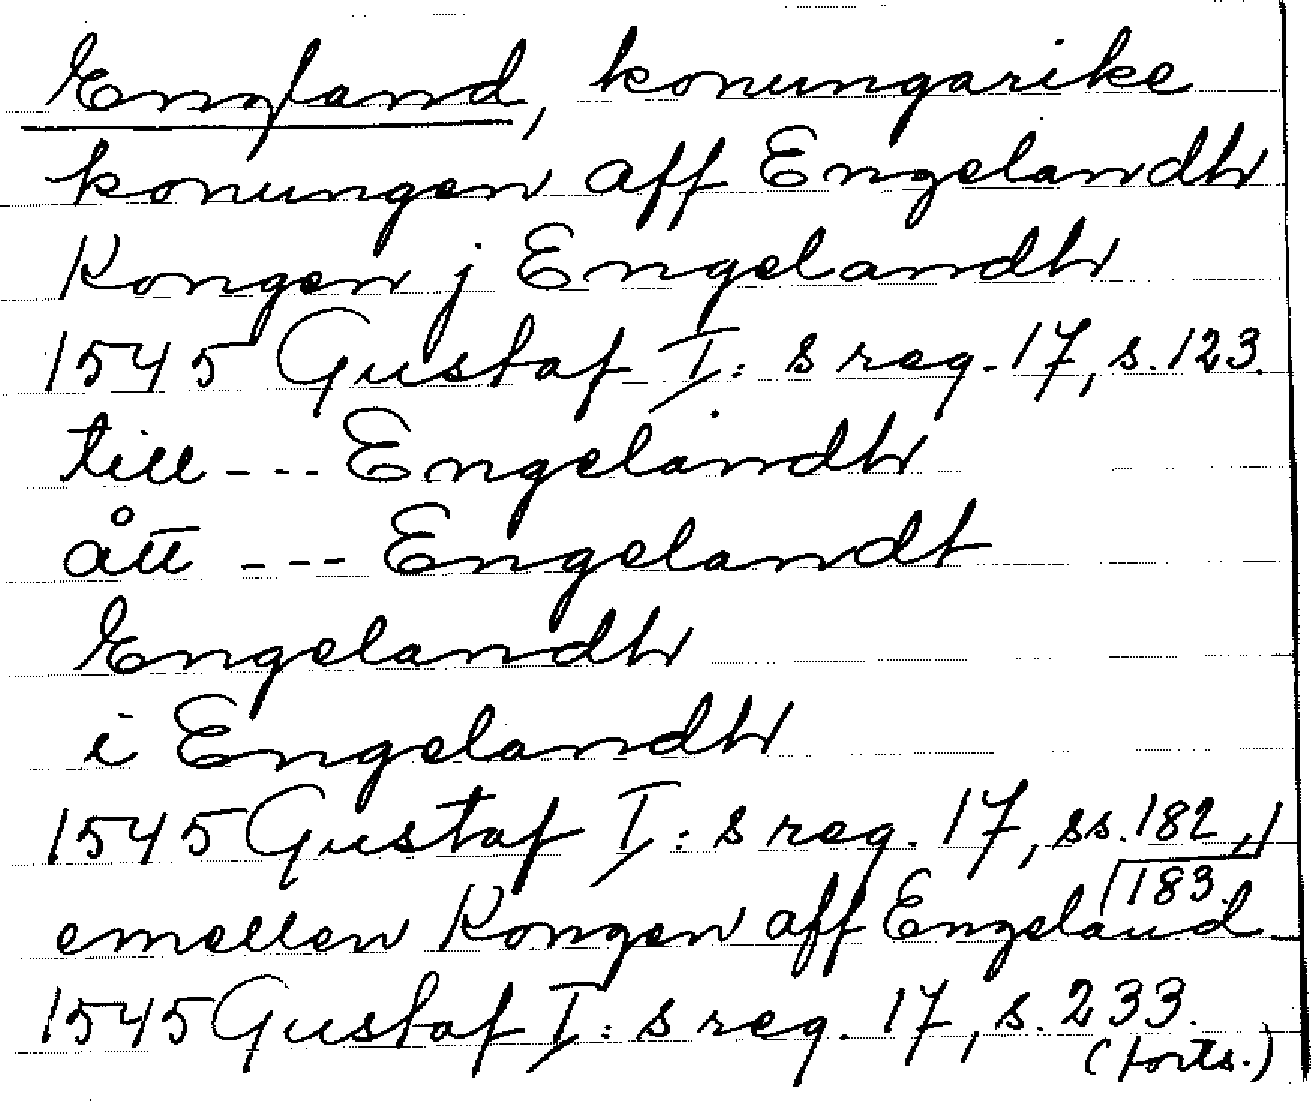 England, konungarike
konungen aff Engelandh
Kongen j Engelandh
1545 Gustaf I: s reg. 17, s. 123.
till --- Engelandh
ått --- Engelandt
Engelandh
i Engelandh
1545 Gustaf I: s reg. 17, ss. 182,
183.
emellen Kongen aff Engeland
1545 Gustaf I: s reg. 17, s. 233.
(forts.)